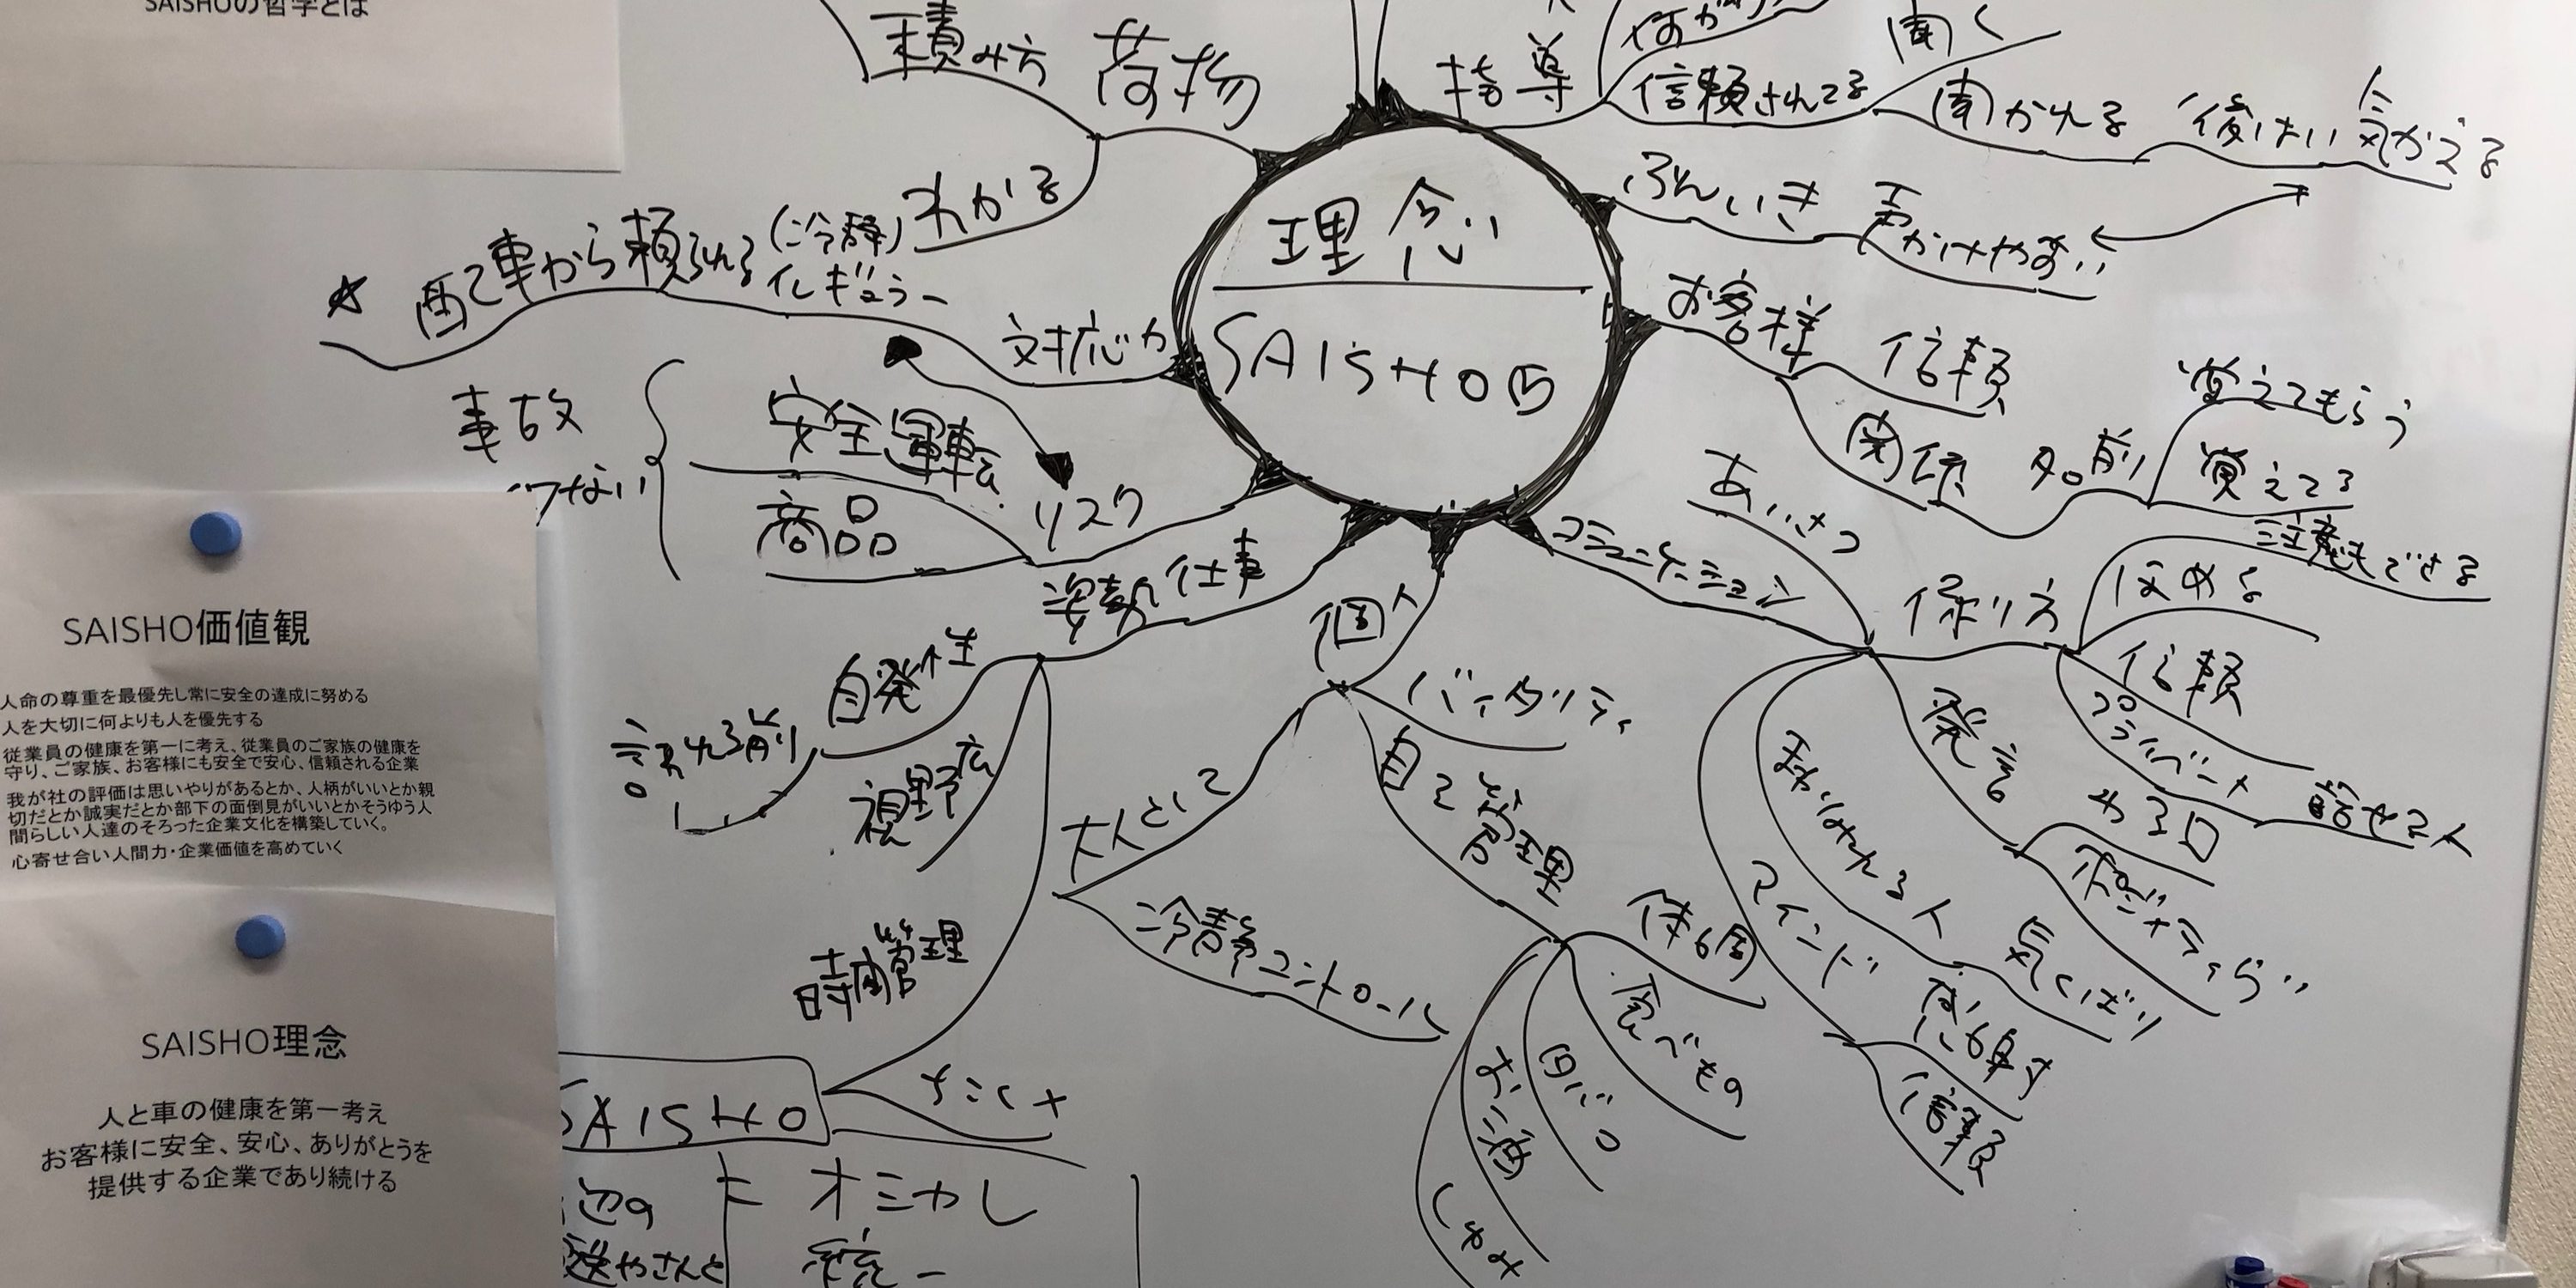 SAISHOの哲学とは
積み方 荷物
わかる
★ 配車から頼られる (冷静)
イレギュラー
対応力
事故
安全運転
商品
リスク
理念
SAISHO
指導
信頼されてる
聞く
聞かれる
後はい
ふんいき 声かけやすい
お客様
信頼
関係 名前
覚えてもらう
覚えてる
コミュニケーション
あいさつ
保り方
注意もできる
ほめる
信頼
プライベート 話せる人
発言
わる口
ポジティブ
まかせれる人 気くばり
マインド
信頼
個人
バイタリティ
自己管理
体調
食べもの
タバコ
お酒
大人として
冷静コントロール
姿勢 仕事
自発性
言われる前
視野広
時間管理
SAISHO
辺の
送やさんと
オミカレ
統一
SAISHO価値観
人命の尊重を最優先し常に安全の達成に努める
人を大切に何よりも人を優先する
従業員の健康を第一に考え、従業員のご家族の健康を
守り、ご家族、お客様にも安全で安心、信頼される企業
我が社の評価は思いやりがあるとか、人柄がいいとか親
切だとか誠実だとか部下の面倒見がいいとかそうゆう人
間らしい人達のそろった企業文化を構築していく。
心寄せ合い人間力・企業価値を高めていく
SAISHO理念
人と車の健康を第一考え
お客様に安全、安心、ありがとうを
提供する企業であり続ける